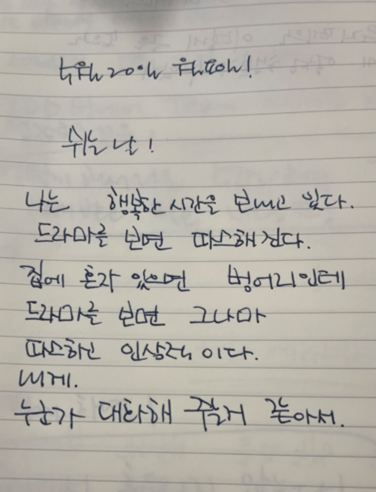 20일 월요일!
쉬는 날!
나는 행복한 시간을 보내고 있다.
드라마를 보면 따스해진다.
집에 혼자 있으면 벙어리인데
드라마를 보면 그나마
따스하고 인상적이다.
내게.
누군가 대답해 줄거 같아서.